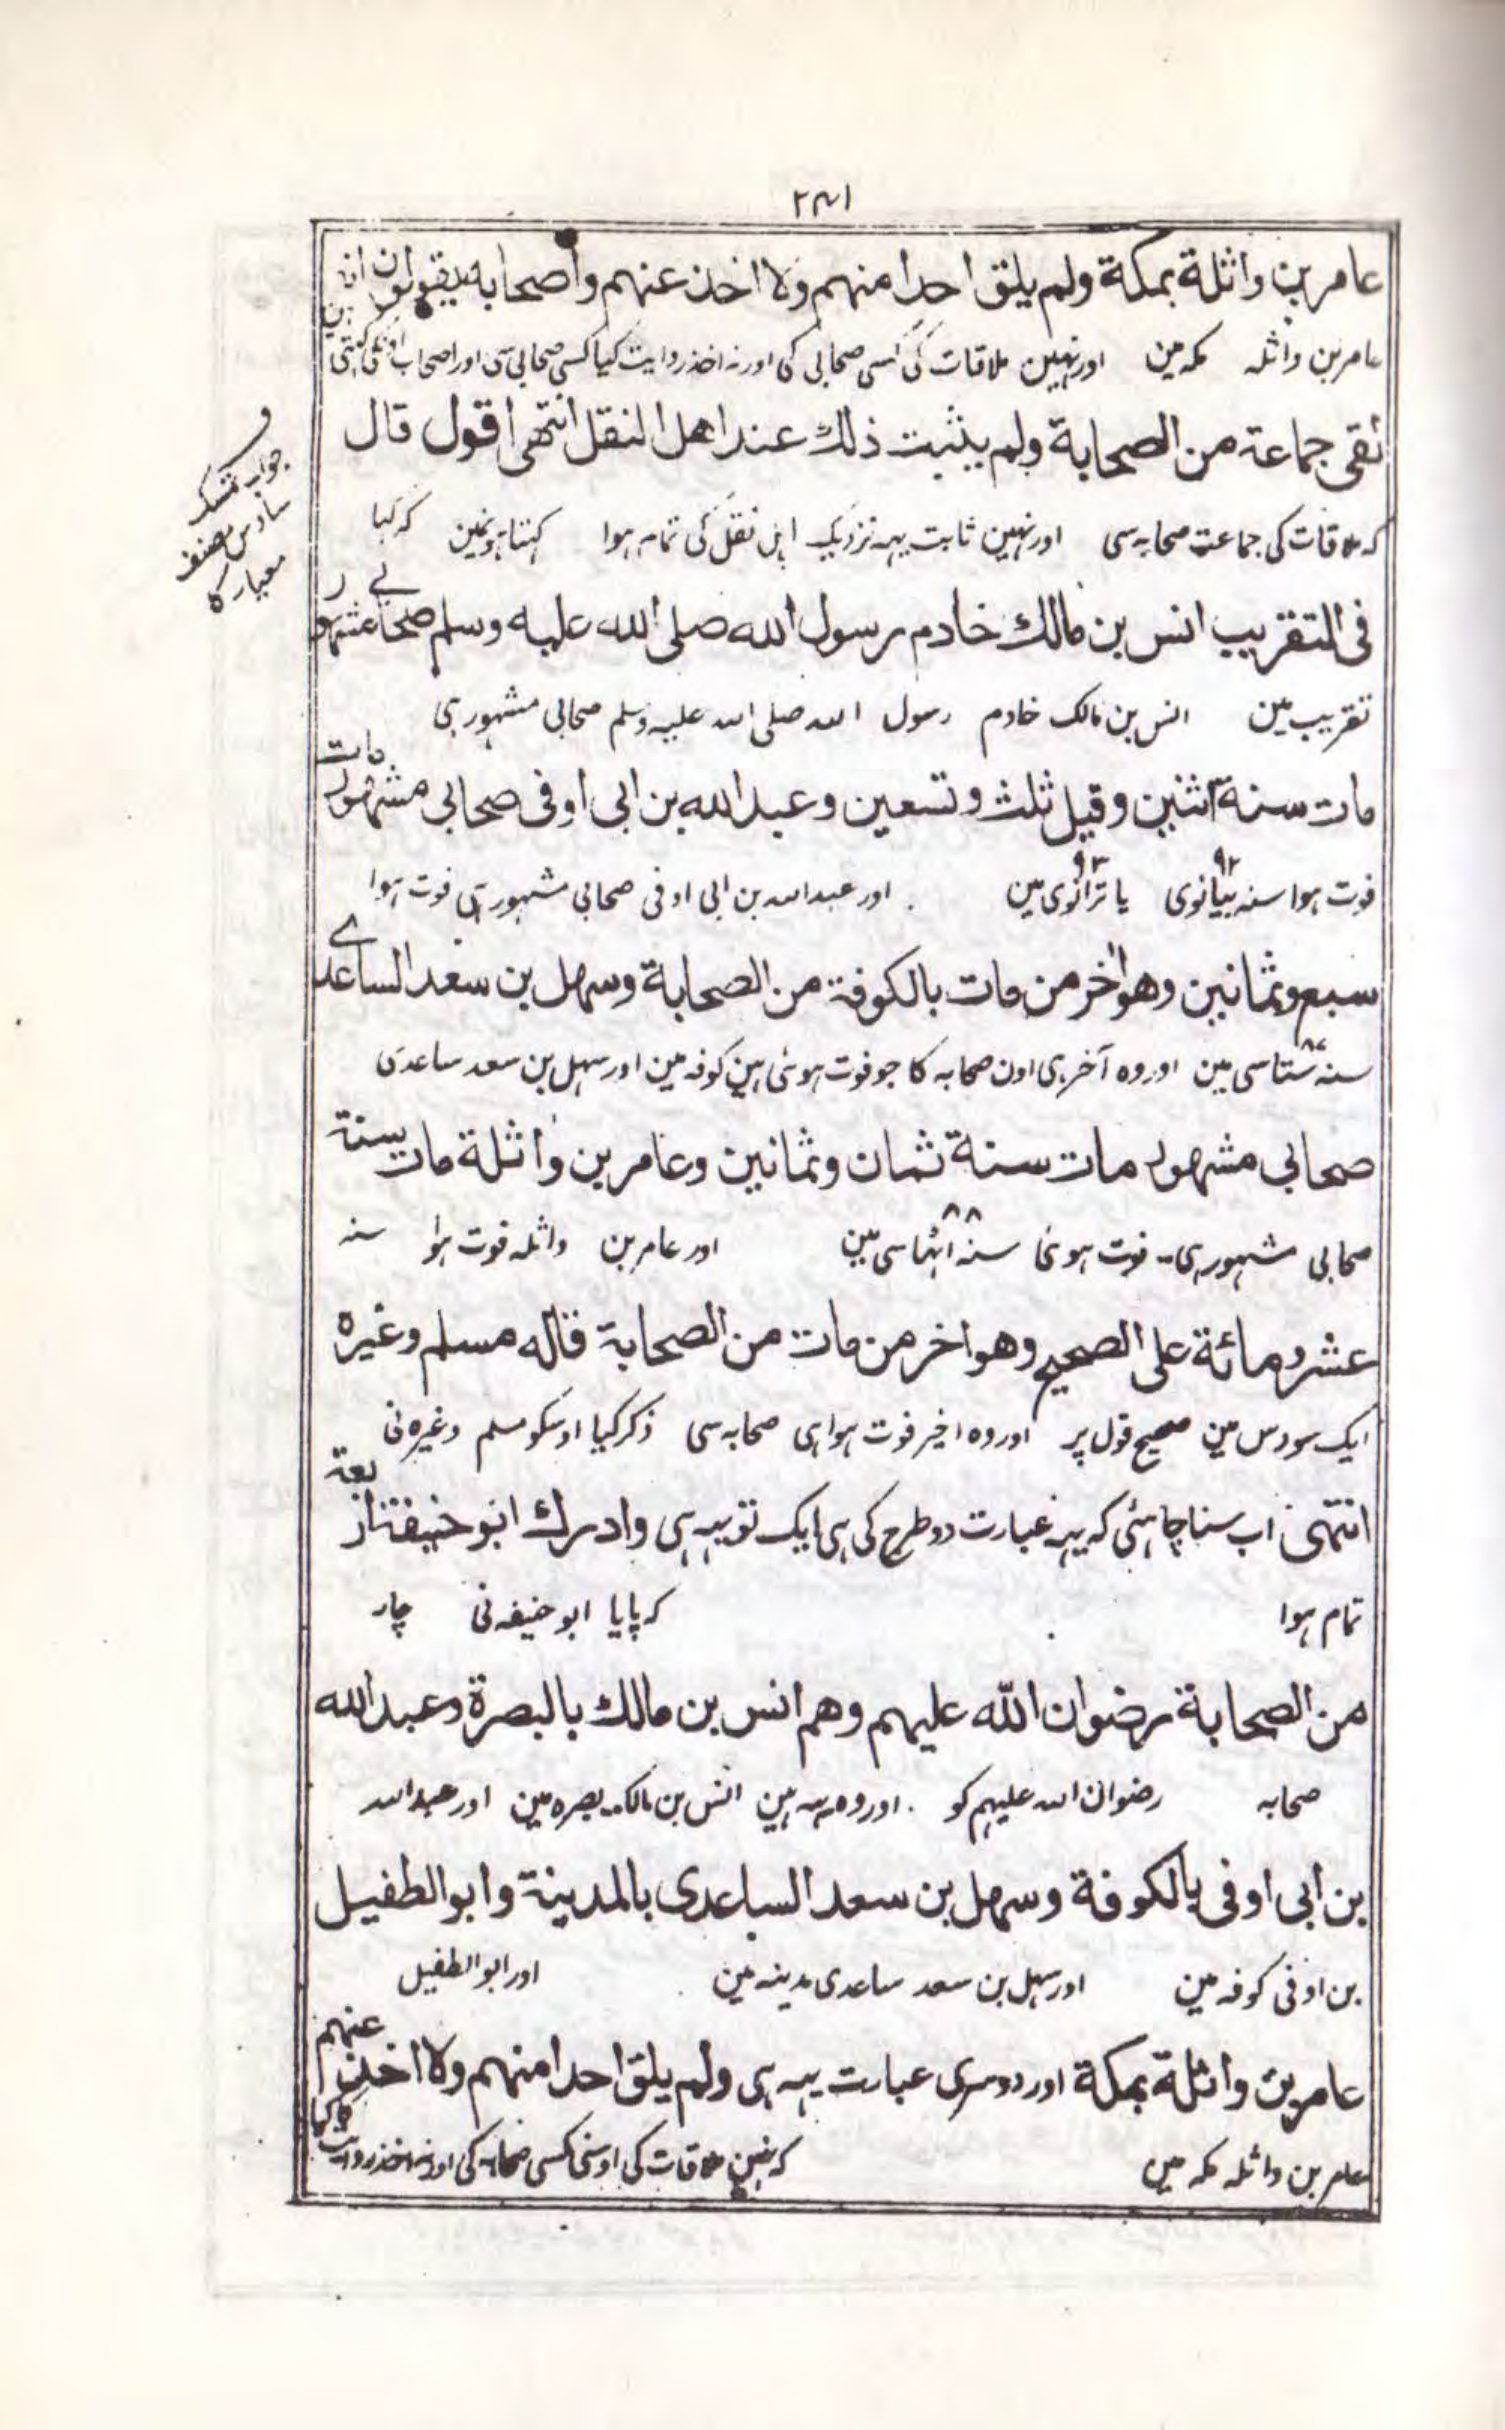 ۲۴۱
عامر بن واثلة بمكة ولم يلق احدا منهم ولا اخذ عنهم واصحابه يقولون انه
عامر بن واثلہ مکہ مین اور نہین ملاقات کی کسی صحابی کی اور نہ اخذ روایت کیا کسی صحابی سی اور اصحاب اونکی کہتی ہین
لقى جماعة من الصحابة ولم يثبت ذلك عند اهل النقل انتهى اقول قال
کہ ملاقات کی جماعت صحابہ سی اور نہین ثابت یہہ نزدیک اہل نقل کی تمام ہوا کہتا ہونمین کہ کہا
فى التقريب انس بن مالك خادم رسول الله صلى الله عليه وسلم صحابي مشهور
تقریب مین انس بن مالک خادم رسول اللہ صلی اللہ علیہ وسلم صحابی مشہور ہی
مات سنة اثنين وقيل ثلث وتسعين وعبد الله بن ابى اوفى صحابى مشهور مات
فوت ہوا سنہ بیانوی ۹۲ یا ترانوی ۹۳ مین اور عبد اللہ بن ابی اوفی صحابی مشہور ہی فوت ہوا
سبع وثمانين وهو اخر من مات بالكوفة من الصحابة وسهل بن سعد الساعدي
سنہ ستاسی ۸۷ مین اور وہ آخر ہی اون صحابہ کا جو فوت ہوئی ہین کوفہ مین اور سہل بن سعد ساعدی
صحابى مشهور مات سنة ثمان وثمانين وعامر بن واثلة مات سنة
صحابی مشہور ہی۔ فوت ہوئی سنہ ۸۸ اٹہاسی مین اور عامر بن واثلہ فوت ہوا سنہ
عشر ومائة على الصحيح وهو اخر من مات من الصحابة قاله مسلم وغيره
ایک سو دس مین صحیح قول پر اور وہ اخیر فوت ہوا ہی صحابہ سی ذکر کیا اوسکو مسلم وغیرہ نی
انتہی اب سننا چاہئی کہ یہہ عبارت دو طرح کی ہی ایک تو یہہ ہی وادرك ابو حنيفة اربعة
تمام ہوا کہ پایا ابو حنیفہ نی چار
من الصحابة رضوان الله عليهم وهم انس بن مالك بالبصرة وعبد الله
صحابہ رضوان اللہ علیہم کو اور وہ یہہ ہین انس بن مالک بصرہ مین اور عبد اللہ
بن ابى اوفى بالكوفة وسهل بن سعد الساعدى بالمدينة وابو الطفيل
بن اوفی کوفہ مین اور سہل بن سعد ساعدی مدینہ مین اور ابو الطفیل
عامر بن واثلة بمكة اور دوسری عبارت یہہ ہی ولم يلق احدا منهم ولا اخذ عنهم
عامر بن واثلہ مکہ مین کہ نہین ملاقات کی اوسنی کسی صحابہ کی اور نہ اخذ روایت کیا
جواب تمسک
سادس مصنف
معیار کا